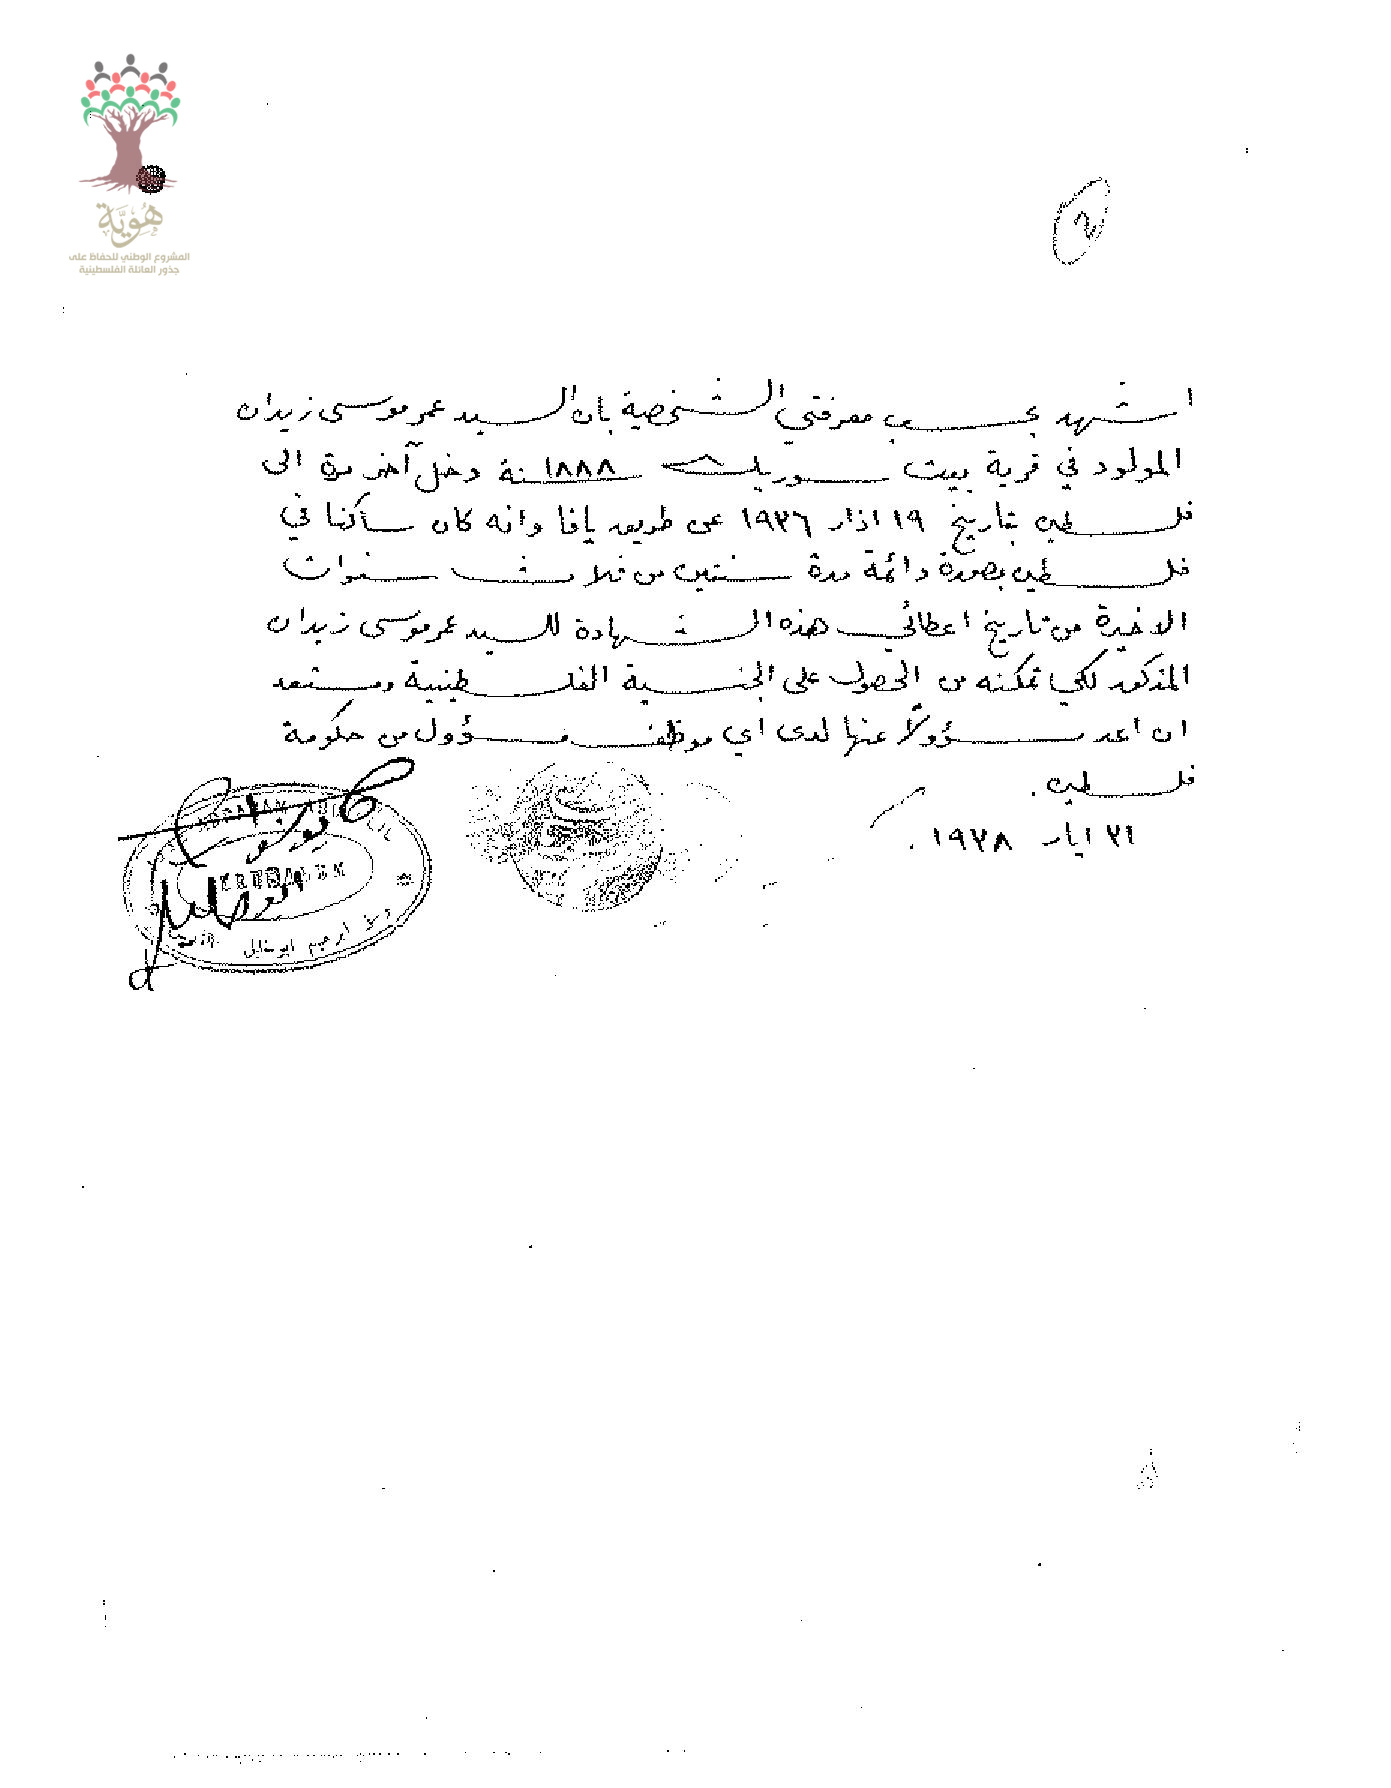 هوية
المشروع الوطني للحفاظ على
جذور العائلة الفلسطينية
اشهد بحسب معرفتي الشخصية بان السيد عمر موسى زيدان
المولود في قرية بيت سوريك سنة ١٨٨٨ دخل آخر مرة الى
فلسطين بتاريخ ١٩ اذار ١٩٣٦ عن طريق يافا وانه كان ساكنا في
فلسطين بصورة دائمة مدة سنتين من ثلاث سنوات
الاخيرة من تاريخ اعطائي هذه الشهادة للسيد عمر موسى زيدان
المذكور لكي تمكنه من الحصول على الجنسية الفلسطينية ومستعد
ان اعد مسؤولاً عنها لدى اي موظف مسؤول من حكومة
فلسطين.
٣١ ايار ١٩٣٨.